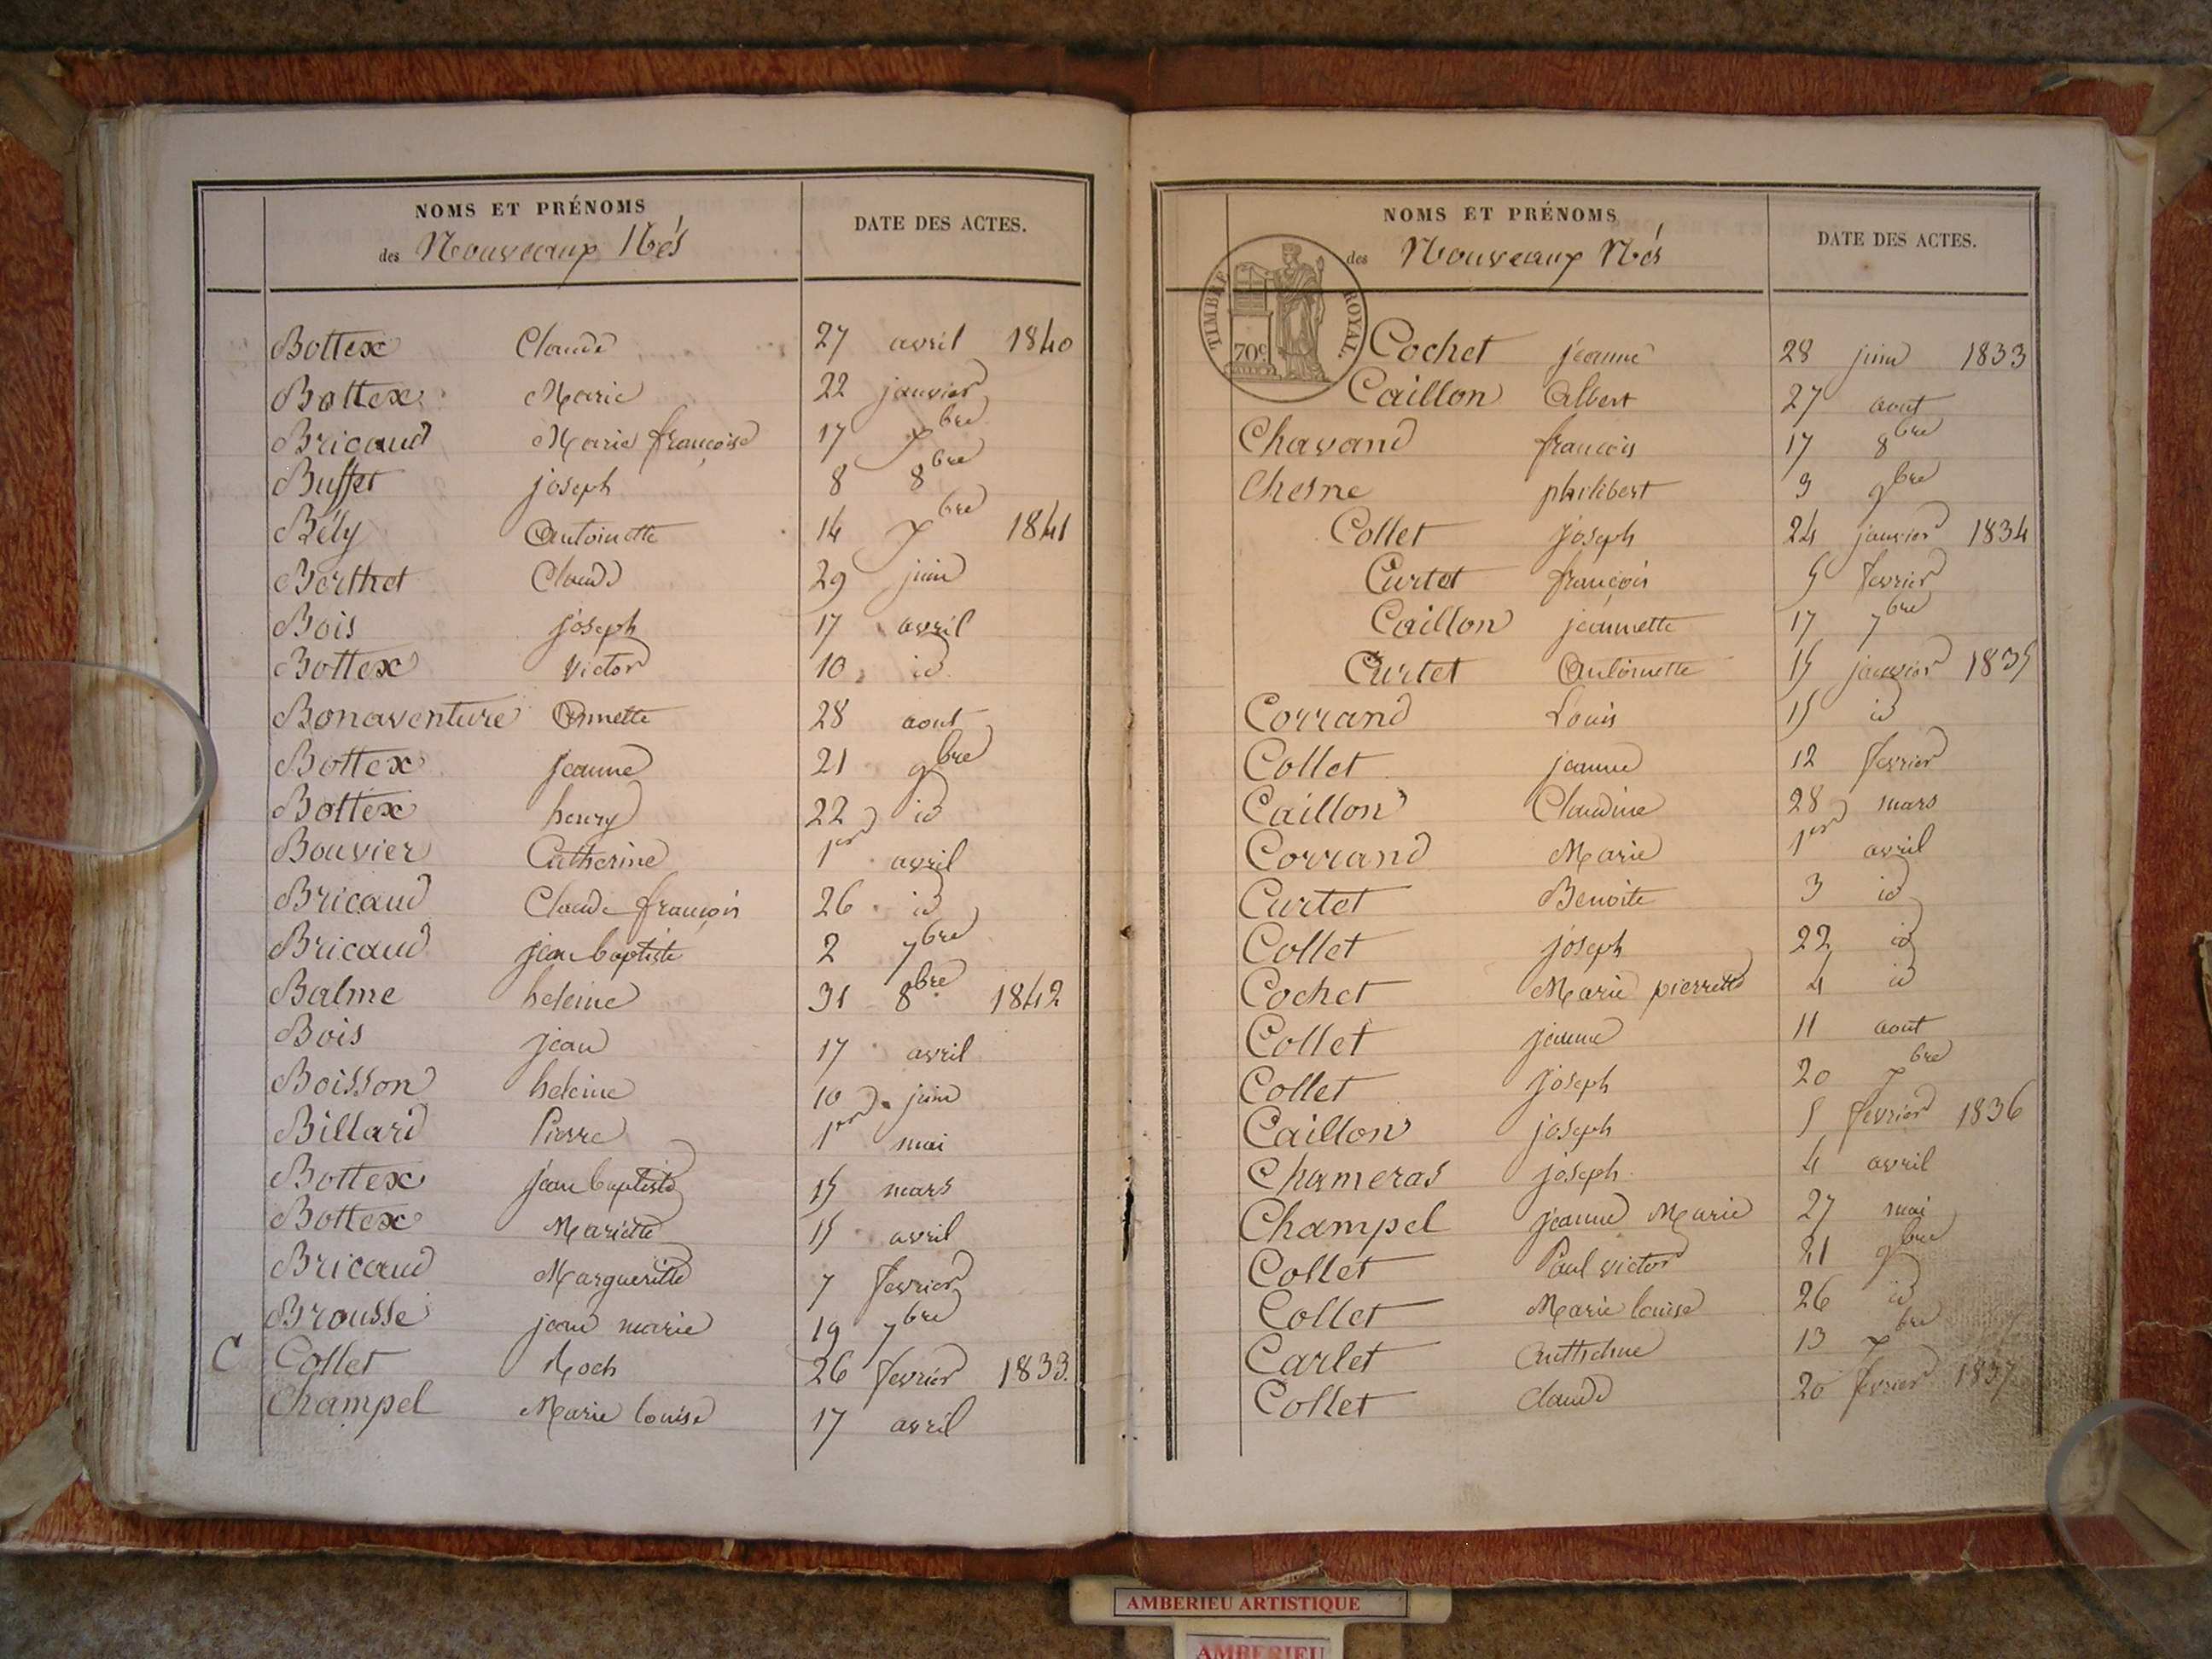 NOMS ET PRÉNOMS
des Nouveaux Nés
DATE DES ACTES.
Bottex Claude 27 avril 1840
Bottex Marie 22 janvier
Bricaud Marie françoise 17 Xbre
Buffet joseph 8 8bre
Bély Antoinette 14 Xbre 1841
Berthet Claude 29 juin
Bois joseph 17 avril
Bottex Victor 10 id
Bonaventure Annette 28 aout
Bottex jeanne 21 9bre
Bottex henry 22 id
Bouvier Catherine 1er avril
Bricaud Claude françois 26 id
Bricaud jean baptiste 2 7bre
Balme heleine 31 8bre 1842
Bois jean 17 avril
Boisson heleine 10 juin
Billard Pierre 1er mai
Bottex jean baptiste 15 mars
Bottex Mariette 15 avril
Bricaud Margueritte 7 fevrier
Brousse jean marie 19 7bre
C Collet Roch 26 fevrier 1833.
Champel Marie louise 17 avril
NOMS ET PRÉNOMS
des Nouveaux Nés
DATE DES ACTES.
TIMBRE ROYAL.
70c
Cochet jeanne 28 juin 1833
Caillon Albert 27 aout
Chavand françois 17 8bre
Chesne philibert 3 9bre
Collet joseph 24 janvier 1834
Curtet françois 5 fevrier
Caillon jeannette 17 7bre
Curtet Antoinette 15 janvier 1835
Corrand Louis 15 id
Collet jeanne 12 fevrier
Caillon Claudine 28 mars
Corrand Marie 1er avril
Curtet Benoite 3 id
Collet joseph 22 id
Cochet Marie pierrette 4 id
Collet jeanne 11 aout
Collet joseph 20 Xbre
Caillon joseph 5 fevrier 1836
Chameras joseph 4 avril
Champel jeanne Marie 27 mai
Collet Paul victor 21 9bre
Collet Marie louise 26 id
Carlet 13 Xbre
Collet Claude 20 fevrier 1837
AMBERIEU ARTISTIQUE
AMBERIEU